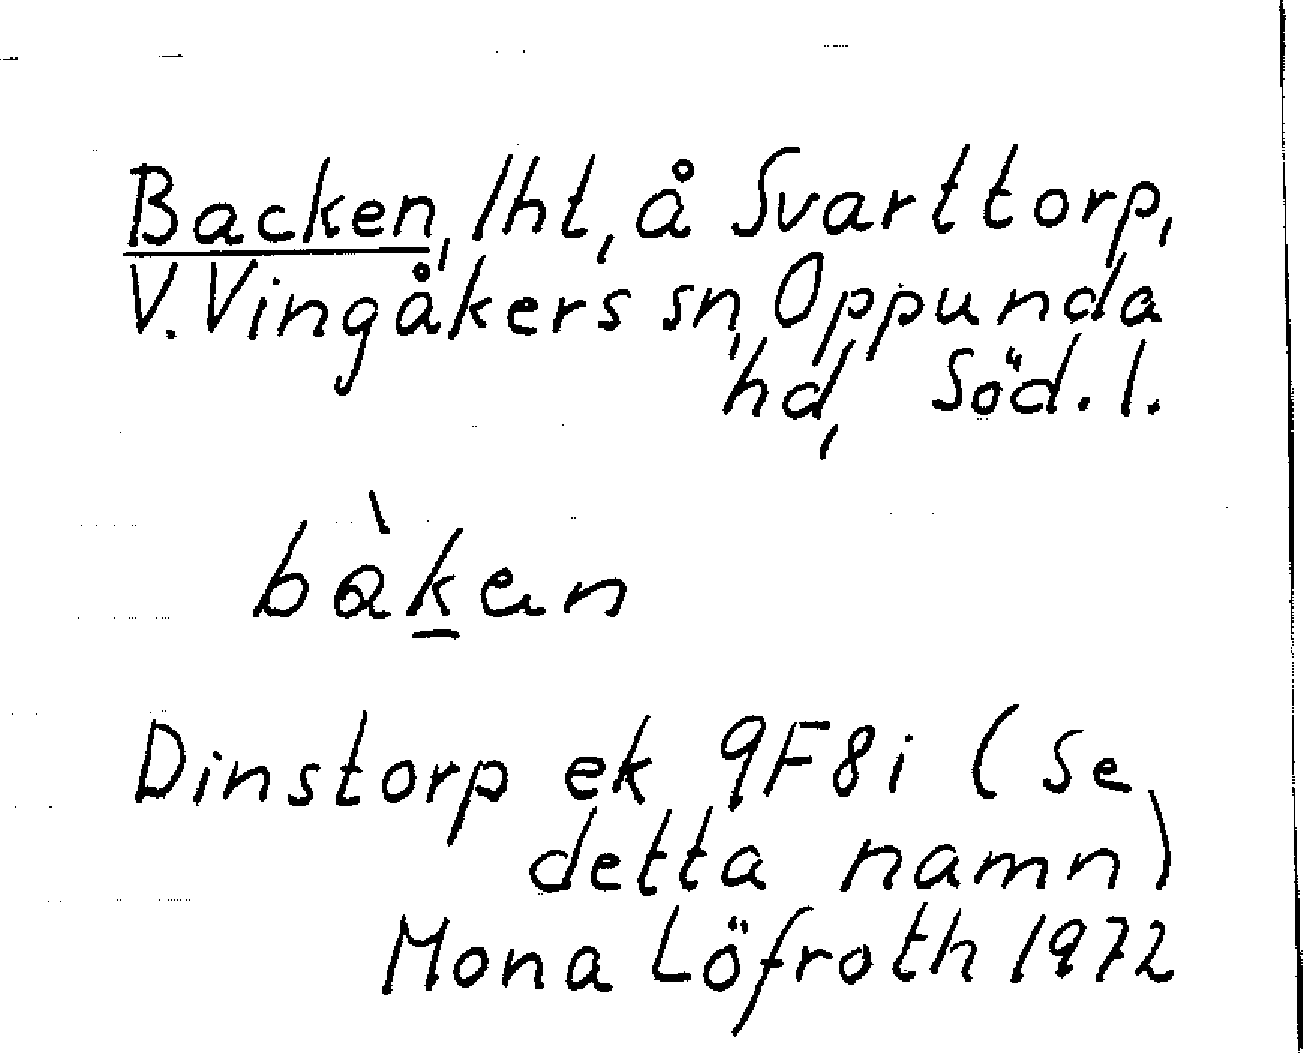 Backen, lht, å Svarttorp,
V. Vingåkers sn, Oppunda
hd, Söd. l.
bàk̲en
Dinstorp ek 9F8i (se
detta namn)
Mona Löfroth 1972